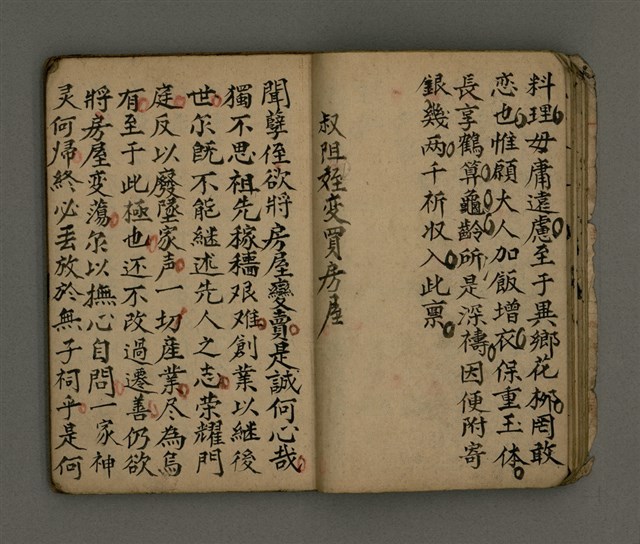 料理毋庸遠慮至于異鄉花柳罔敢
恋也惟願大人加飯增衣保重玉体
長享鶴算龜齡所是深禱因便附寄
銀幾两千祈収入此禀
叔阻姪变買房屋
聞孽侄欲將房屋變賣是誠何心哉
獨不思祖先稼穡艰难創業以継後
世尓既不能継述先人之志荣耀門
庭反以廢墜家声一切産業尽為烏
有至于此極也还不改過遷善仍欲
將房屋变蕩尓以撫心自問一家神
灵何帰終必丢放於無子祠乎是何